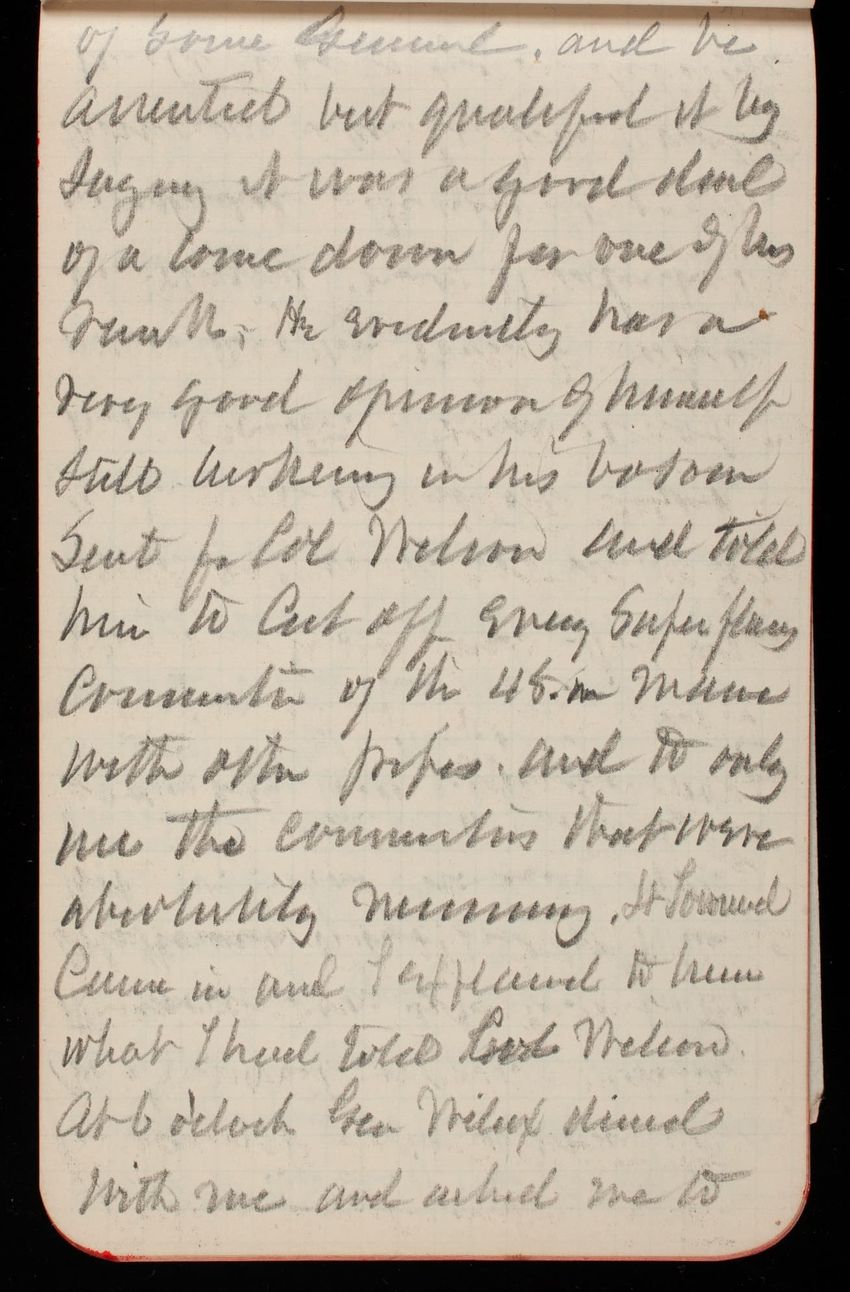 of some General, and he
assented but qualified it by
saying it was a good deal
of a come down for one of his
rank, He evidently has a
very good opinion of himself
still lurking in his bosom
Sent for Col Nelson and told
him to Cut off every Superflous
Connection of the 48. in main
with other pipes. and to only
use the connections that were
absolutely necessary. Lt
Came in and I explained to him
what I had told Col Nelson.
At 6 o'clock Gen Wilcox dined
with me and asked me to